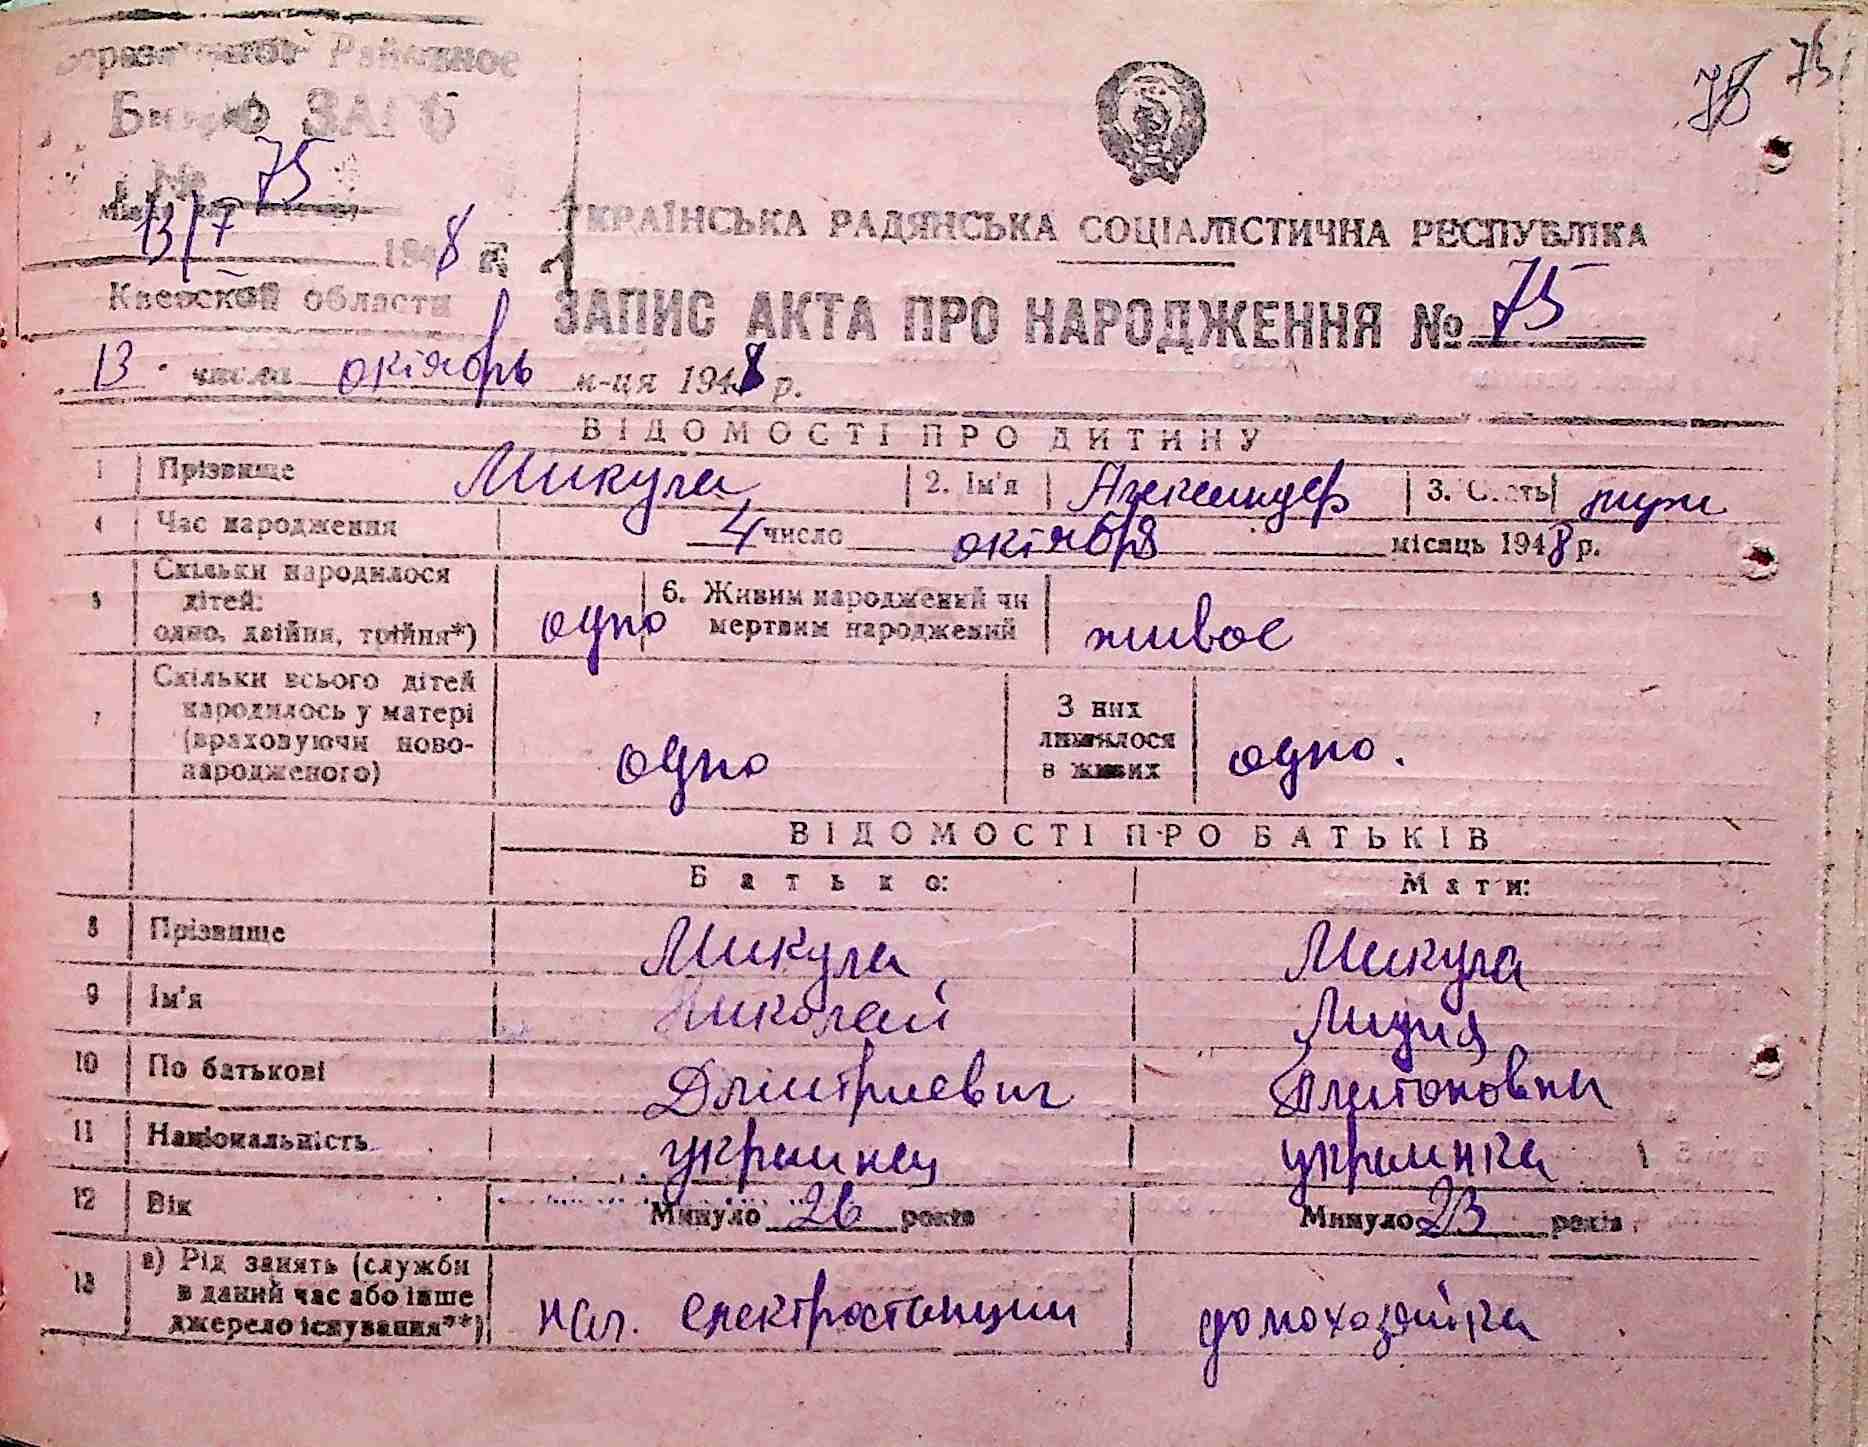 Районное
Бюро ЗАГС
№ 75
13/X 1948 г.
Киевской области
78 75
УКРАЇНСЬКА РАДЯНСЬКА СОЦІАЛІСТИЧНА РЕСПУБЛІКА
ЗАПИС АКТА ПРО НАРОДЖЕННЯ № 75
13 числа октябрь м-ця 1948 р.
ВІДОМОСТІ ПРО ДИТИНУ
1 Прізвище Микула 2. Ім'я Александр 3. Стать муж
4 Час народження 4 число октября місяць 1948 р.
5 Скільки народилося
дітей:
одно, двійня, трійня*) одно 6. Живим народжений чи
мертвим народжений живое
7 Скільки всього дітей
народилось у матері
(враховуючи ново-
народженого) одно
З них
лишилося
в живих одно.
ВІДОМОСТІ ПРО БАТЬКІВ
Батько: Мати:
8 Прізвище Микула Микула
9 Ім'я Николай Лидия
10 По батькові Дмитриевич Платоновна
11 Національність украинец украинка
12 Вік Минуло 26 років Минуло 23 років
13 а) Рід занять (служби
в даний час або інше
джерело існування**) нач. електростанции домохозяйка